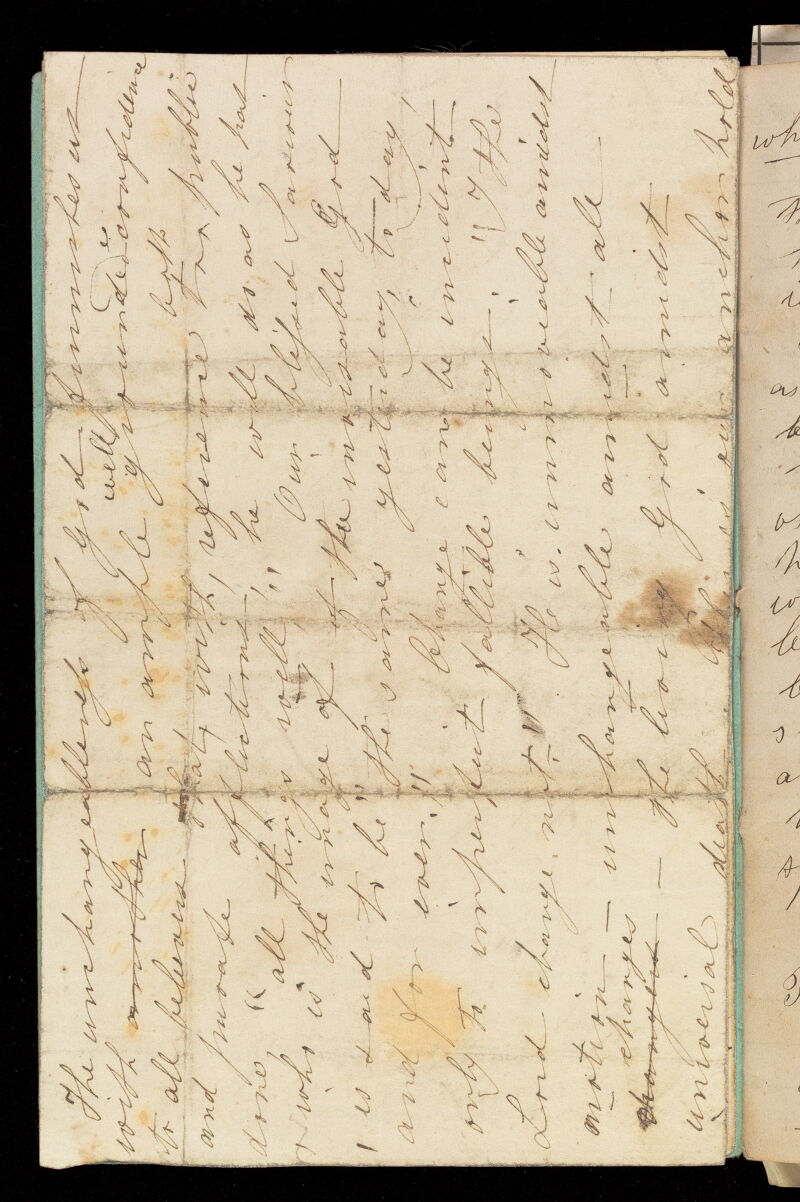 The unchangeableness of God furnishes us
with another an ample well grounded confidence
to all believers that, with reference both
and private afflictions, for public
done, "all things well," he will do as he has
who is the image of the invisable God Our blessed Saviour
is said to be "the same yesterday, to day,
and for ever." Change can be incident
only to imperfect fallible beings. "I the
Lord change not." He is immoveable amidst
motion — unchangeable amidst all
changes changes — the living God amidst
universal death. This is our anchor hold